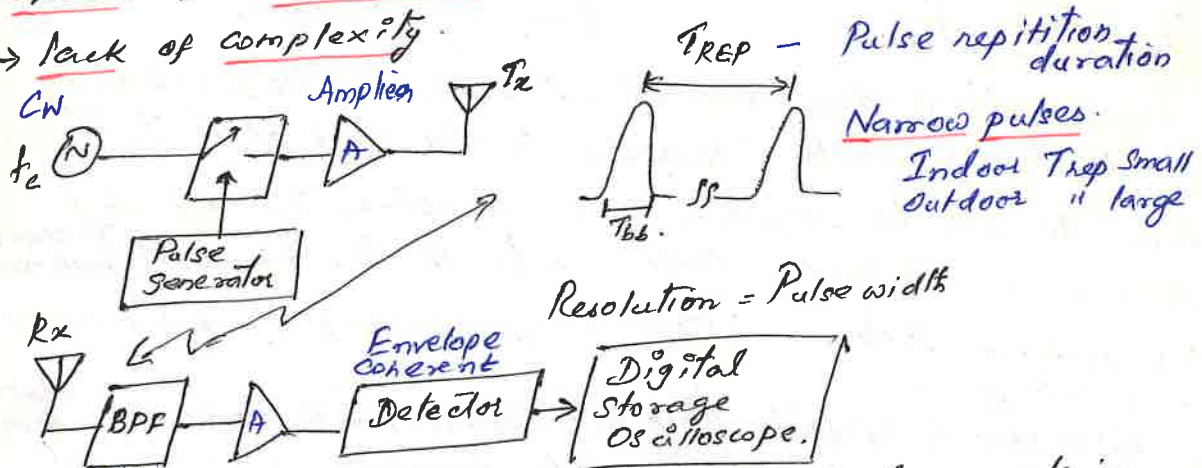 → lack of complexity.
CW
fc
Amplier
Tx
A
Pulse
generator
TREP - Pulse repitition
duration
Narrow pulses.
Indoor Trep Small
Outdoor " large
Tbb.
Resolution = Pulse width
Rx
BPF
A
Envelope
Coherent
Detector
Digital
Storage
Oscilloscope.